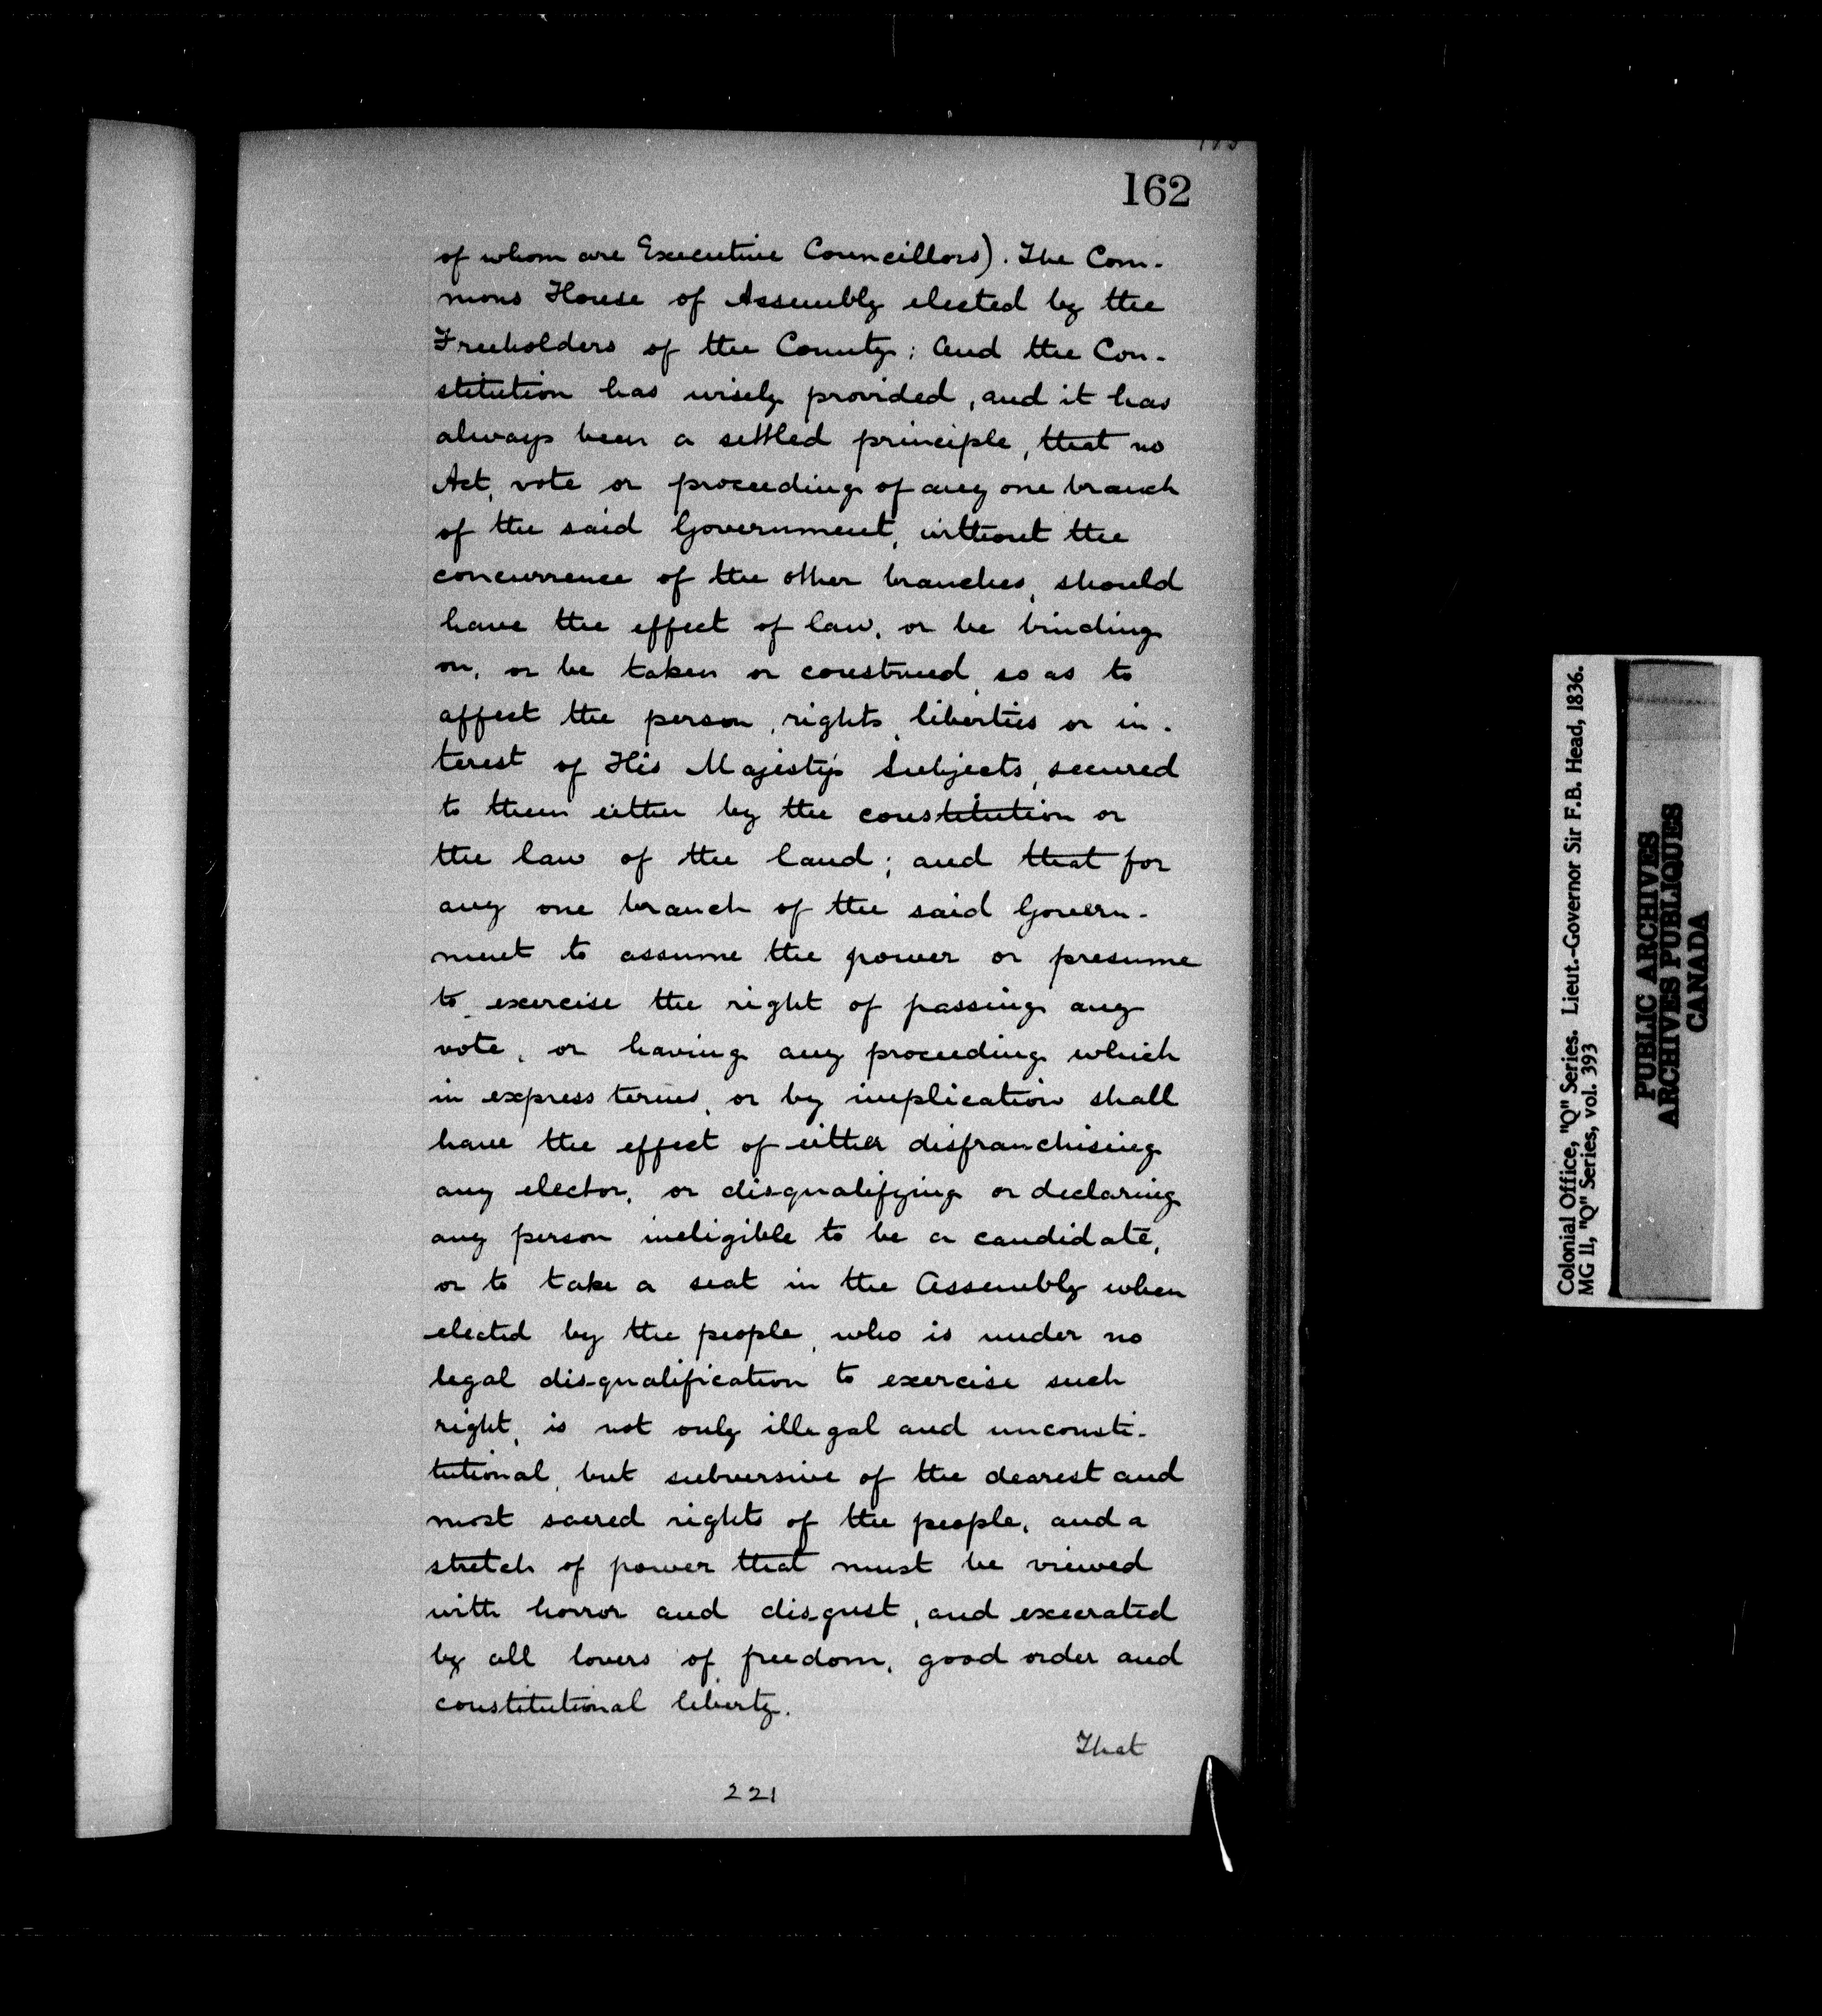 162
of whom are Executive Councillors). The Com-
mons House of Assembly elected by the
Freeholders of the County; And the Con-
stitution has wisely provided, and it has
always been a settled principle, that no
Act, vote or proceeding of any one branch
of the said Government, without the
concurrence of the other branches, should
have the effect of law, or be binding
on, or be taken or construed, so as to
affect the person, rights, liberties or in-
terest of His Majesty's Subjects, secured
to them either by the constitution or
the law of the land; and that for
any one branch of the said Govern-
ment to assume the power or presume
to exercise the right of passing any
vote, or having any proceeding which
in express terms, or by implication shall
have the effect of either disfranchising
any elector, or disqualifying or declaring
any person ineligible to be a candidate,
or to take a seat in the Assembly when
elected by the people, who is under no
legal disqualification to exercise such
right, is not only illegal and unconsti-
tutional, but subversive of the dearest and
most sacred rights of the people, and a
stretch of power that must be viewed
with horror and disgust, and execrated
by all lovers of freedom, good order and
constitutional liberty.
That
221
Colonial Office, "Q" Series. Lieut.-Governor Sir F.B. Head, 1836.
MG 11, "Q" Series, vol. 393
PUBLIC ARCHIVES
ARCHIVES PUBLIQUES
CANADA